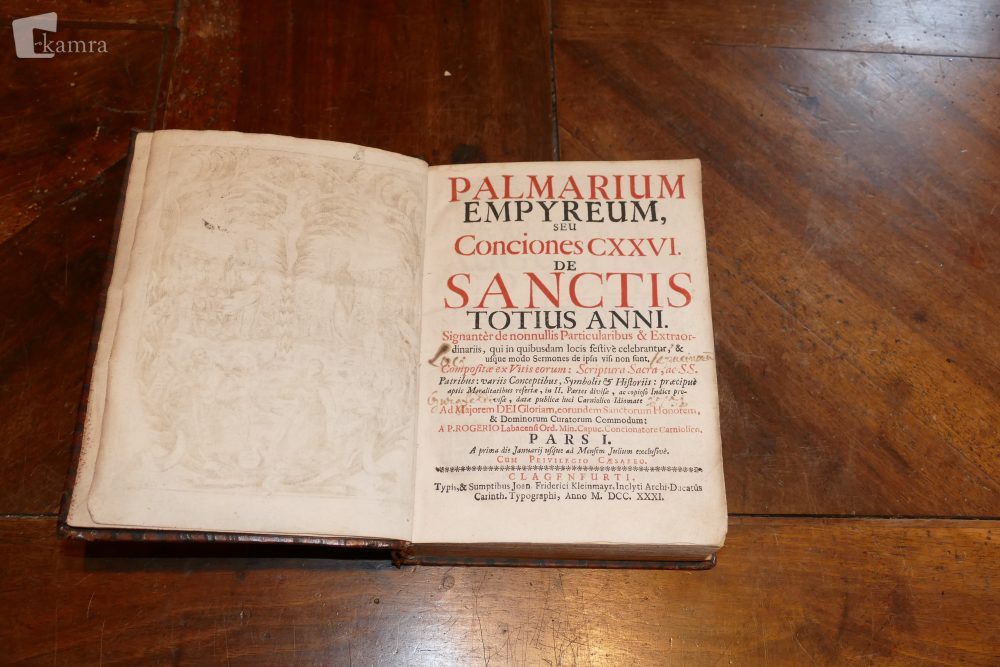 kamra
PALMARIUM
EMPYREUM,
SEU
Conciones CXXVI.
DE
SANCTIS
TOTIUS ANNI.
Signantèr de nonnullis Particularibus & Extraor-
dinariis, qui in quibusdam locis festivè celebrantur, &
usque modo Sermones de ipsis visi non sunt,
Compositæ ex Vitis eorum: Scriptura Sacra, ac SS.
Patribus: variis Conceptibus, Symbolis & Historiis: præcipuè
aptis Moralitatibus refertæ, in II. Partes divisæ, ac copioso Indice pro-
visæ, datæ publicæ luci Carniolico Idiomate
Ad Majorem DEI Gloriam, eorundem Sanctorum Honorem,
& Dominorum Curatorum Commodum;
A P. ROGERIO Labacensi Ord. Min. Capuc. Concionatore Carniolico.
PARS I.
A prima die Januarij usque ad Mensem Julium exclusivè.
CUM PRIVILEGIO CÆSAREO.
CLAGENFURTI,
Typis, & Sumptibus Joan. Friderici Kleinmayr, Inclyti Archi-Ducatûs
Carinth. Typographi, Anno M. DCC. XXXI.